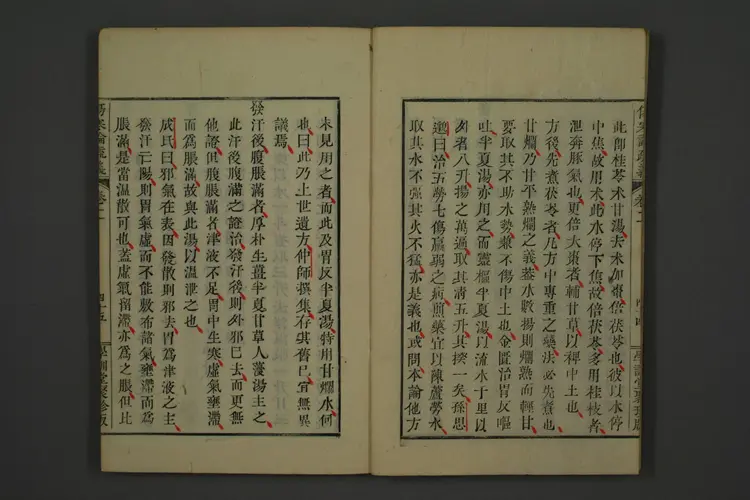 此即桂苓术甘湯去术加棗倍茯苓也彼以水停
中焦故用术此水停下焦故倍茯苓多用桂枝者
泄奔豚氣也更倍大棗者輔甘草以稗中土也
方後先煮茯苓者凡方中專重之藥法必先煮也
甘爛乃甘平熟爛之義蓋水數揚則爛熟而輕甘
要取其不助水勢兼不傷中土也金匱治胃反嘔
吐半夏湯亦用之而靈樞半夏湯以流水千里以
外者八升揚之萬遍取其清五升其揆一矣孫思
邈曰治五勞七傷羸弱之病煎藥宜以陳蘆勞水
取其水不强其火不猛亦是義也或問本論他方
未見用之者而此及胃反半夏湯特用甘爛水何
也曰此乃上世遺方仲師撰集存其舊已宜無異
議焉
發汗後腹脹滿者厚朴生薑半夏甘草人薓湯主之
此汗後腹滿之證治發汗後則外邪已去而更無
他證但腹脹滿者津液不足胃中生寒虛氣壅滯
而爲脹滿故與此湯以温泄之也
成氏曰邪氣在表因發散則邪去胃爲津液之主
發汗亡陽則胃氣虛而不能敷布諸氣壅滯而爲
脹滿是當温散可也蓋虛氣留滯亦爲之脹但比
傷寒論疏義
卷二
四十五
學訓堂聚珍版